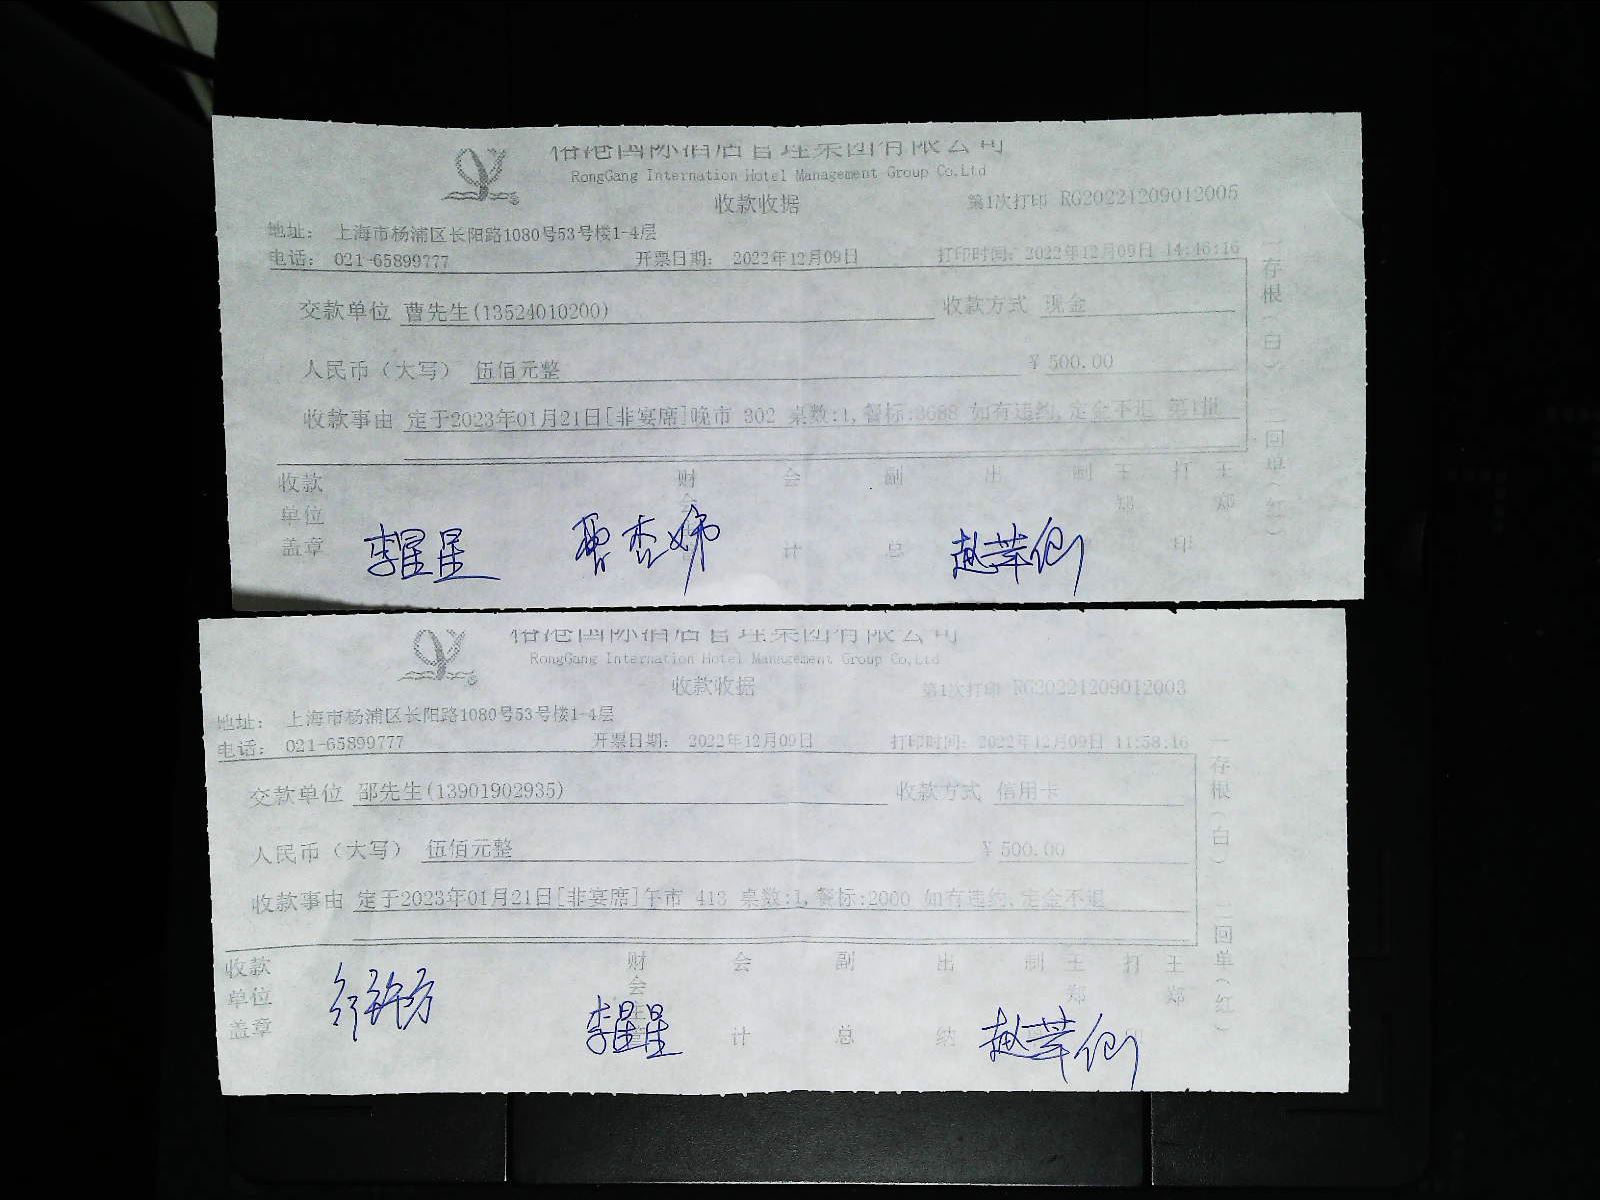 裕港国际酒店管理集团有限公司
RongGang Internation Hotel Management Group Co,Ltd
收款收据
第1次打印 RG20221209012005
地址： 上海市杨浦区长阳路1080号53号楼1-4层
电话： 021-65899777 开票日期： 2022年12月09日 打印时间：2022年12月09日 14:46:16
交款单位 曹先生(13524010200) 收款方式 现金
人民币（大写） 伍佰元整 ￥500.00
收款事由 定于2023年01月21日[非宴席]晚市 302 桌数:1,餐标:3688 如有违约,定金不退 第1批
收款单位盖章 财会 会计 副总 出 制 王郑 打印 王郑
李星星 赵苹仙
一存根（白） 二回单（红）
裕港国际酒店管理集团有限公司
RongGang Internation Hotel Management Group Co,Ltd
收款收据
第1次打印 RG20221209012003
地址： 上海市杨浦区长阳路1080号53号楼1-4层
电话： 021-65899777 开票日期： 2022年12月09日 打印时间：2022年12月09日 11:58:16
交款单位 邵先生(13901902935) 收款方式 信用卡
人民币（大写） 伍佰元整 ￥500.00
收款事由 定于2023年01月21日[非宴席]午市 413 桌数:1,餐标:2000 如有违约,定金不退
收款单位盖章 财会主管 会计 副总 出纳 制 王郑 打印 王郑
李星星 赵苹仙
一存根（白） 二回单（红）